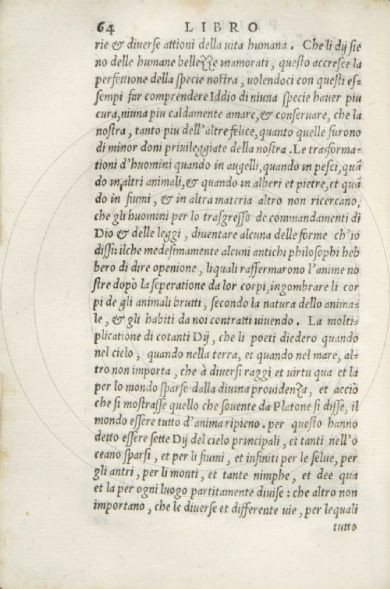 64 LIBRO
rie & diverse attioni della vita humana. Che li dij sie
no delle humane bellezze inamorati, questo accresce la
perfettione della specie nostra, volendoci con questi es-
sempi far comprendere Iddio di niuna specie haver piu
cura, niuna piu caldamente amare, & conservare, che la
nostra, tanto piu dell'altre felice, quanto quelle furono
di minor doni privileggiate della nostra. Le trasforma-
tioni d'huomini quando in augelli, quando in pesci, quã
do in altri animali, & quando in alberi et pietre, et quã
do in fiumi, & in altra materia altro non ricercano,
che gli huomini per lo trasgresso de commandamenti di
Dio & delle leggi, diventare alcuna delle forme ch'io
dissi: ilche medesimamente alcuni antichi philosophi heb
bero di dire openione, liquali raffermarono l'anime no
stre dopò la seperatione da lor corpi, ingombrare li cor
pi de gli animali brutti, secondo la natura dello anima-
le, & gli habiti da noi contratti vivendo. La molti-
plicatione di cotanti Dij, che li poeti diedero quando
nel cielo, quando nella terra, et quando nel mare, al-
tro non importa, che à diversi raggi et virtu qua et la
per lo mondo sparse dalla divina providenza, et acciò
che si mostrasse quello che sovente da Platone si disse, il
mondo essere tutto d'anima ripieno. per questo hanno
detto essere sette Dij del cielo principali, et tanti nell'o
ceano sparsi, et per li fiumi, et infiniti per le selve, per
gli antri, per li monti, et tante nimphe, et dee qua
et la per ogni luogo partitamente divise: che altro non
importano, che le diverse et differente vie, per lequali
tutto